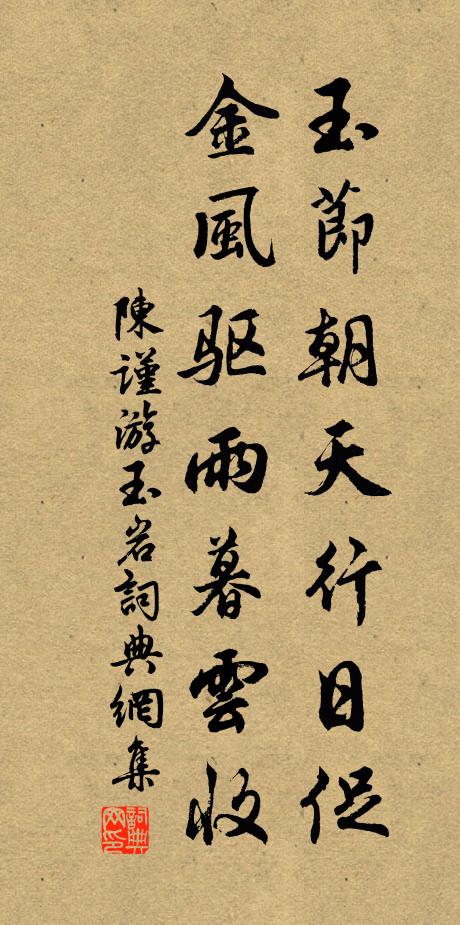 玉節朝天行日促
金風驱雨暮雲收
陳謹游玉岩詞典網集
詞典網印